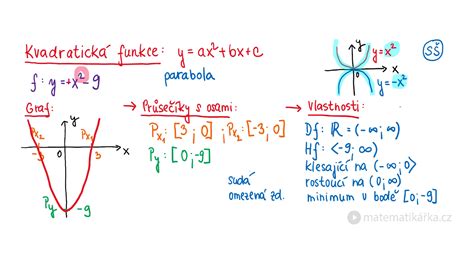 Kvadratická funkce: y = ax²+bx+c
f: y = +x² - 9
parabola
y = x²
y = -x²
x
y
0
SŠ
Graf:
y
x
0
Px₂
Px₁
-3
3
Py
-9
→ Průsečíky s osami:
Px₁ [3; 0] ; Px₂ = [-3; 0]
Py: [0; -9]
sudá
omezená zd.
→ Vlastnosti:
Df: ℝ = (-∞; ∞)
Hf: <-9; ∞)
klesající na (-∞; 0)
rostoucí na (0; ∞)
minimum v bodě [0; -9]
matematikářka.cz